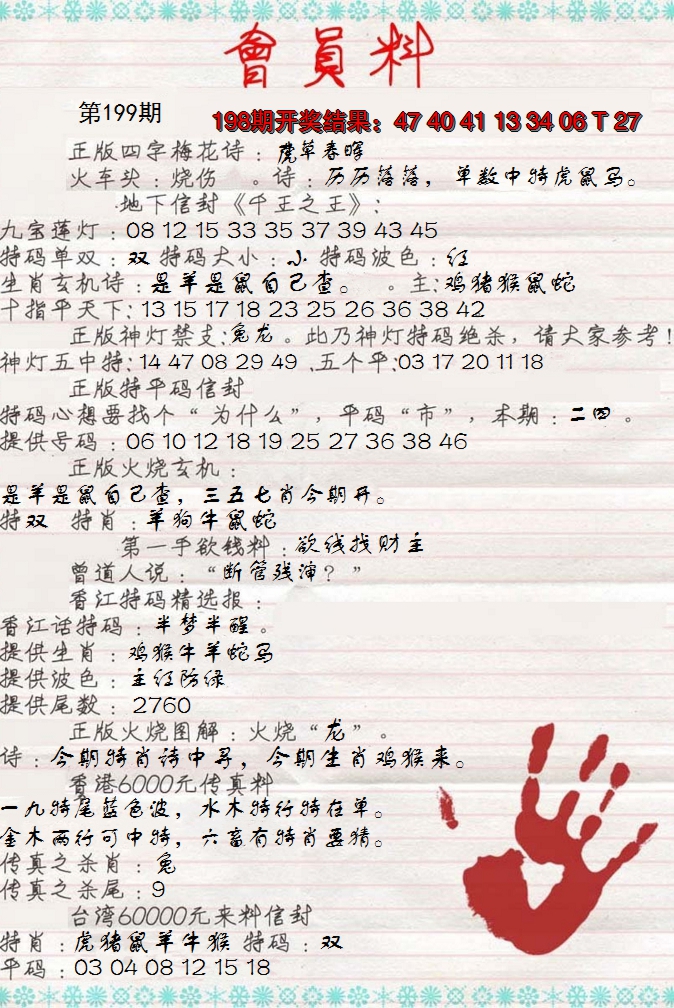 會員料
第199期
198期开奖结果：47 40 41 13 34 06 T 27
正版四字梅花诗：虎草春晖
火车头：烧伤 。诗：历历落落，单数中特虎鼠马。
地下信封《千王之王》：
九宝莲灯：08 12 15 33 35 37 39 43 45
特码单双：双 特码大小：小 特码波色：红
生肖玄机诗：是羊是鼠自己查。 。主:鸡猪猴鼠蛇
十指平天下:13 15 17 18 23 25 26 36 38 42
正版神灯禁支:兔龙。此乃神灯特码绝杀，请大家参考!
神灯五中特:14 47 08 29 49 .五个平:03 17 20 11 18
正版特平码信封
特码心想要找个“为什么”，平码“市”，本期：二四。
提供号码：06 10 12 18 19 25 27 36 38 46
正版火烧玄机：
是羊是鼠自己查，三五七肖今期开。
特双 特肖：羊狗牛鼠蛇
第一手欲钱料：欲钱找财主
曾道人说：“断管残渖？”
香江特码精选报：
香江话特码：半梦半醒。
提供生肖：鸡猴牛羊蛇马
提供波色：主红防绿
提供尾数：2760
正版火烧图解：火烧“龙”。
诗：今期特肖诗中寻，今期生肖鸡猴来。
香港6000元传真料
一九特尾蓝色波，水木特行特在单。
金木两行可中特，六畜有特肖要猜。
传真之杀肖：兔
传真之杀尾：9
台湾60000元来料信封
特肖：虎猪鼠羊牛猴 特码：双
平码：03 04 08 12 15 18